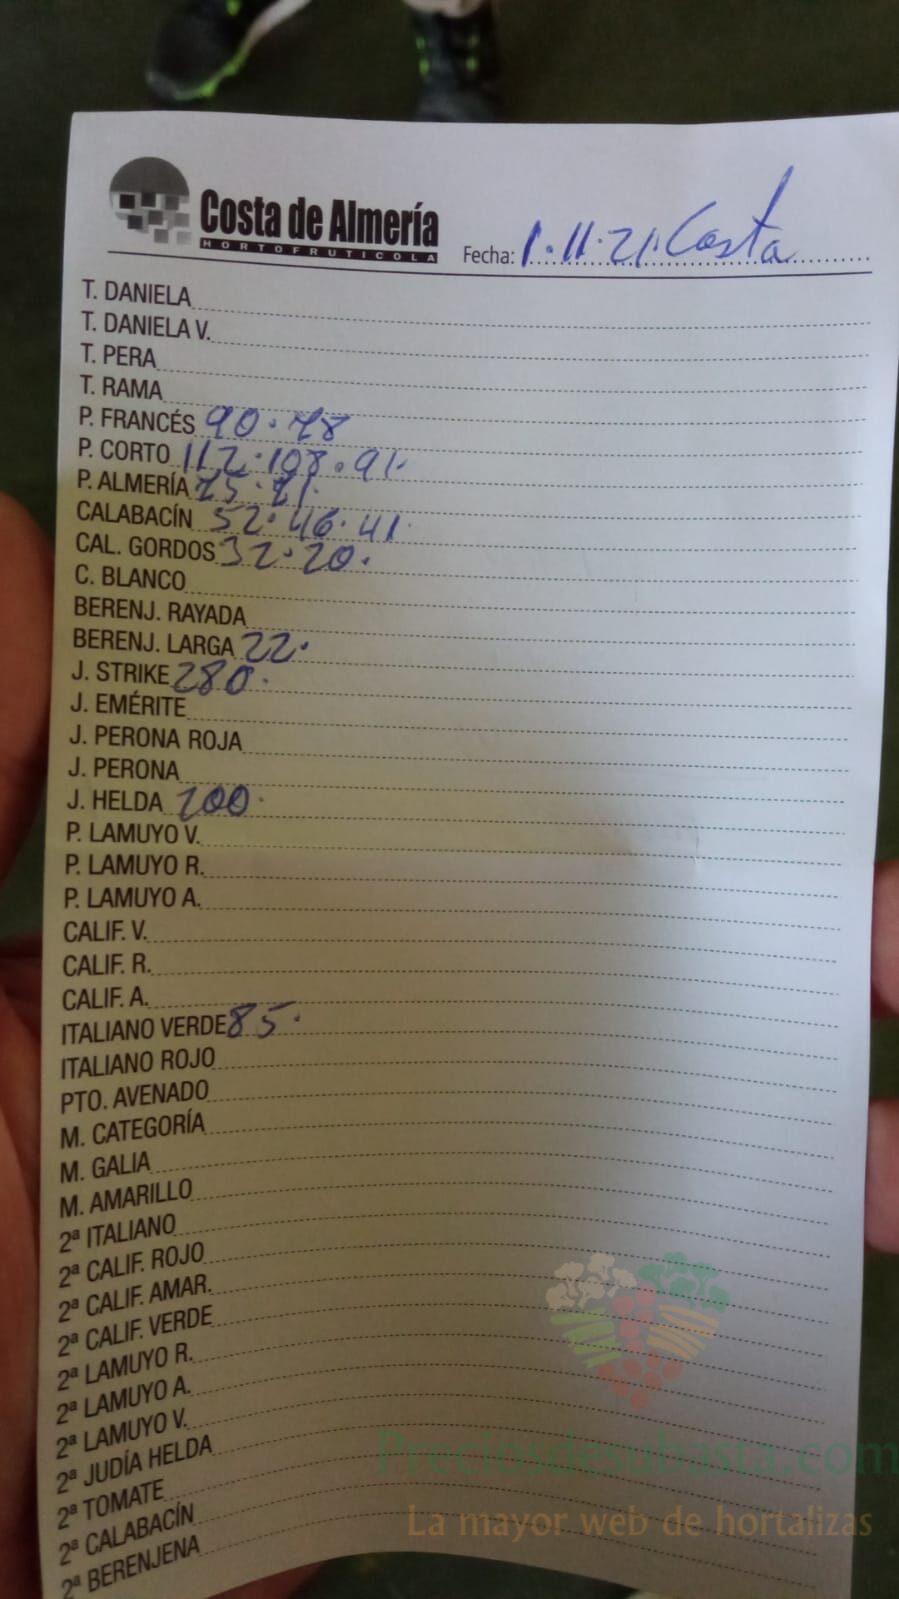 Costa de Almería
HORTOFRUTICOLA
Fecha: 1.11.21. Costa
T. DANIELA
T. DANIELA V.
T. PERA
T. RAMA
P. FRANCÉS 90.78
P. CORTO 112.108.91.
P. ALMERÍA 75.71.
CALABACÍN 52.46.41.
CAL. GORDOS 32.20.
C. BLANCO
BERENJ. RAYADA
BERENJ. LARGA 22.
J. STRIKE 280.
J. EMÉRITE
J. PERONA ROJA
J. PERONA
J. HELDA 200.
P. LAMUYO V.
P. LAMUYO R.
P. LAMUYO A.
CALIF. V.
CALIF. R.
CALIF. A.
ITALIANO VERDE 85.
ITALIANO ROJO
PTO. AVENADO
M. CATEGORÍA
M. GALIA
M. AMARILLO
2ª ITALIANO
2ª CALIF. ROJO
2ª CALIF. AMAR.
2ª CALIF. VERDE
2ª LAMUYO R.
2ª LAMUYO A.
2ª LAMUYO V.
2ª JUDÍA HELDA
2ª TOMATE
2ª CALABACÍN
2ª BERENJENA
Preciosdesubasta.com
La mayor web de hortalizas